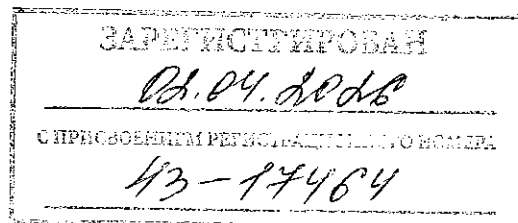 ЗАРЕГИСТРИРОВАН
02.04.2026
С ПРИСВОЕНИЕМ РЕГИСТРАЦИОННОГО НОМЕРА
43-17464